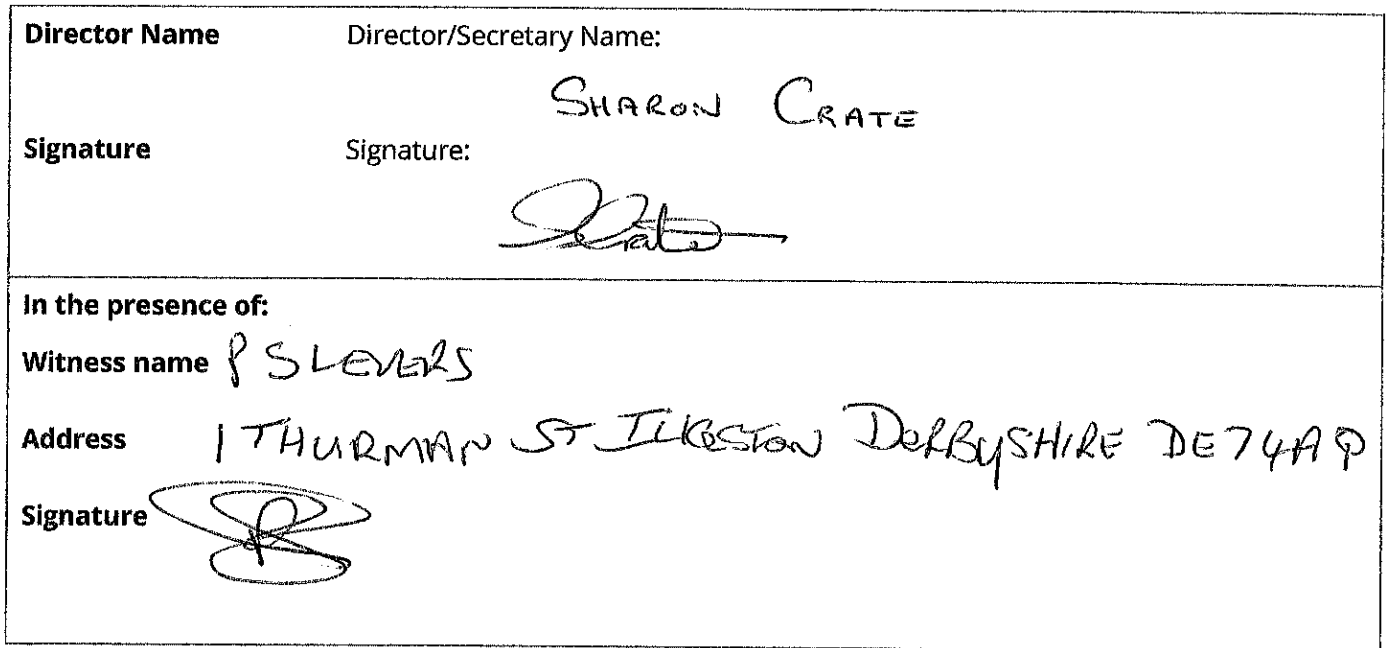 Director Name Director/Secretary Name:
SHARON CRATE
Signature Signature:
SCrate
In the presence of:
Witness name P SLEVERS
Address 1 THURMAN ST ILKESTON DERBYSHIRE DE74AP
Signature